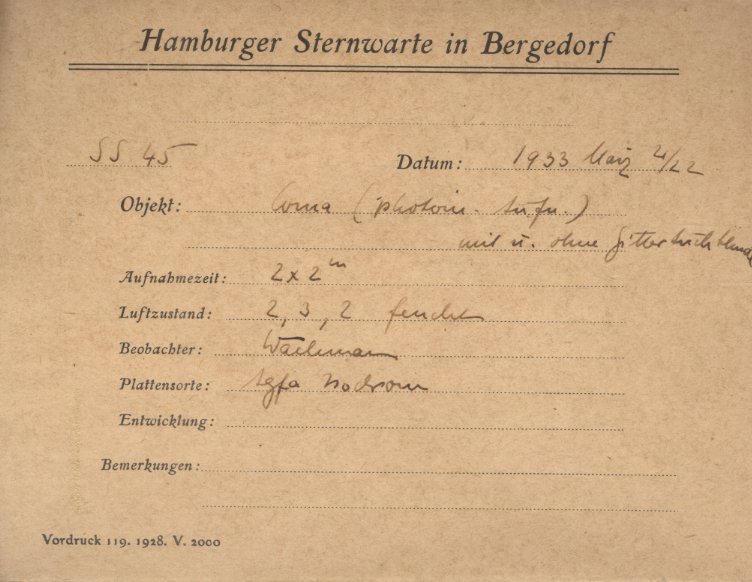 Hamburger Sternwarte in Bergedorf
SS 45 Datum: 1933 März 21/22
Objekt: Coma (photom. Aufn.)
mit u. ohne
Aufnahmezeit: 2x2m
Luftzustand: 2, 3, 2 feucht
Beobachter: Wachmann
Plattensorte: Agfa Isochrom
Entwicklung:
Bemerkungen:
Vordruck 119. 1928. V. 2000